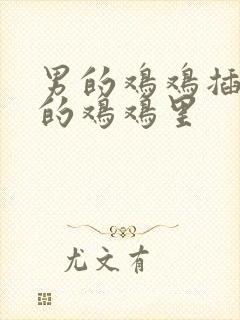 男的鸡鸡插
的鸡鸡里
尤文有